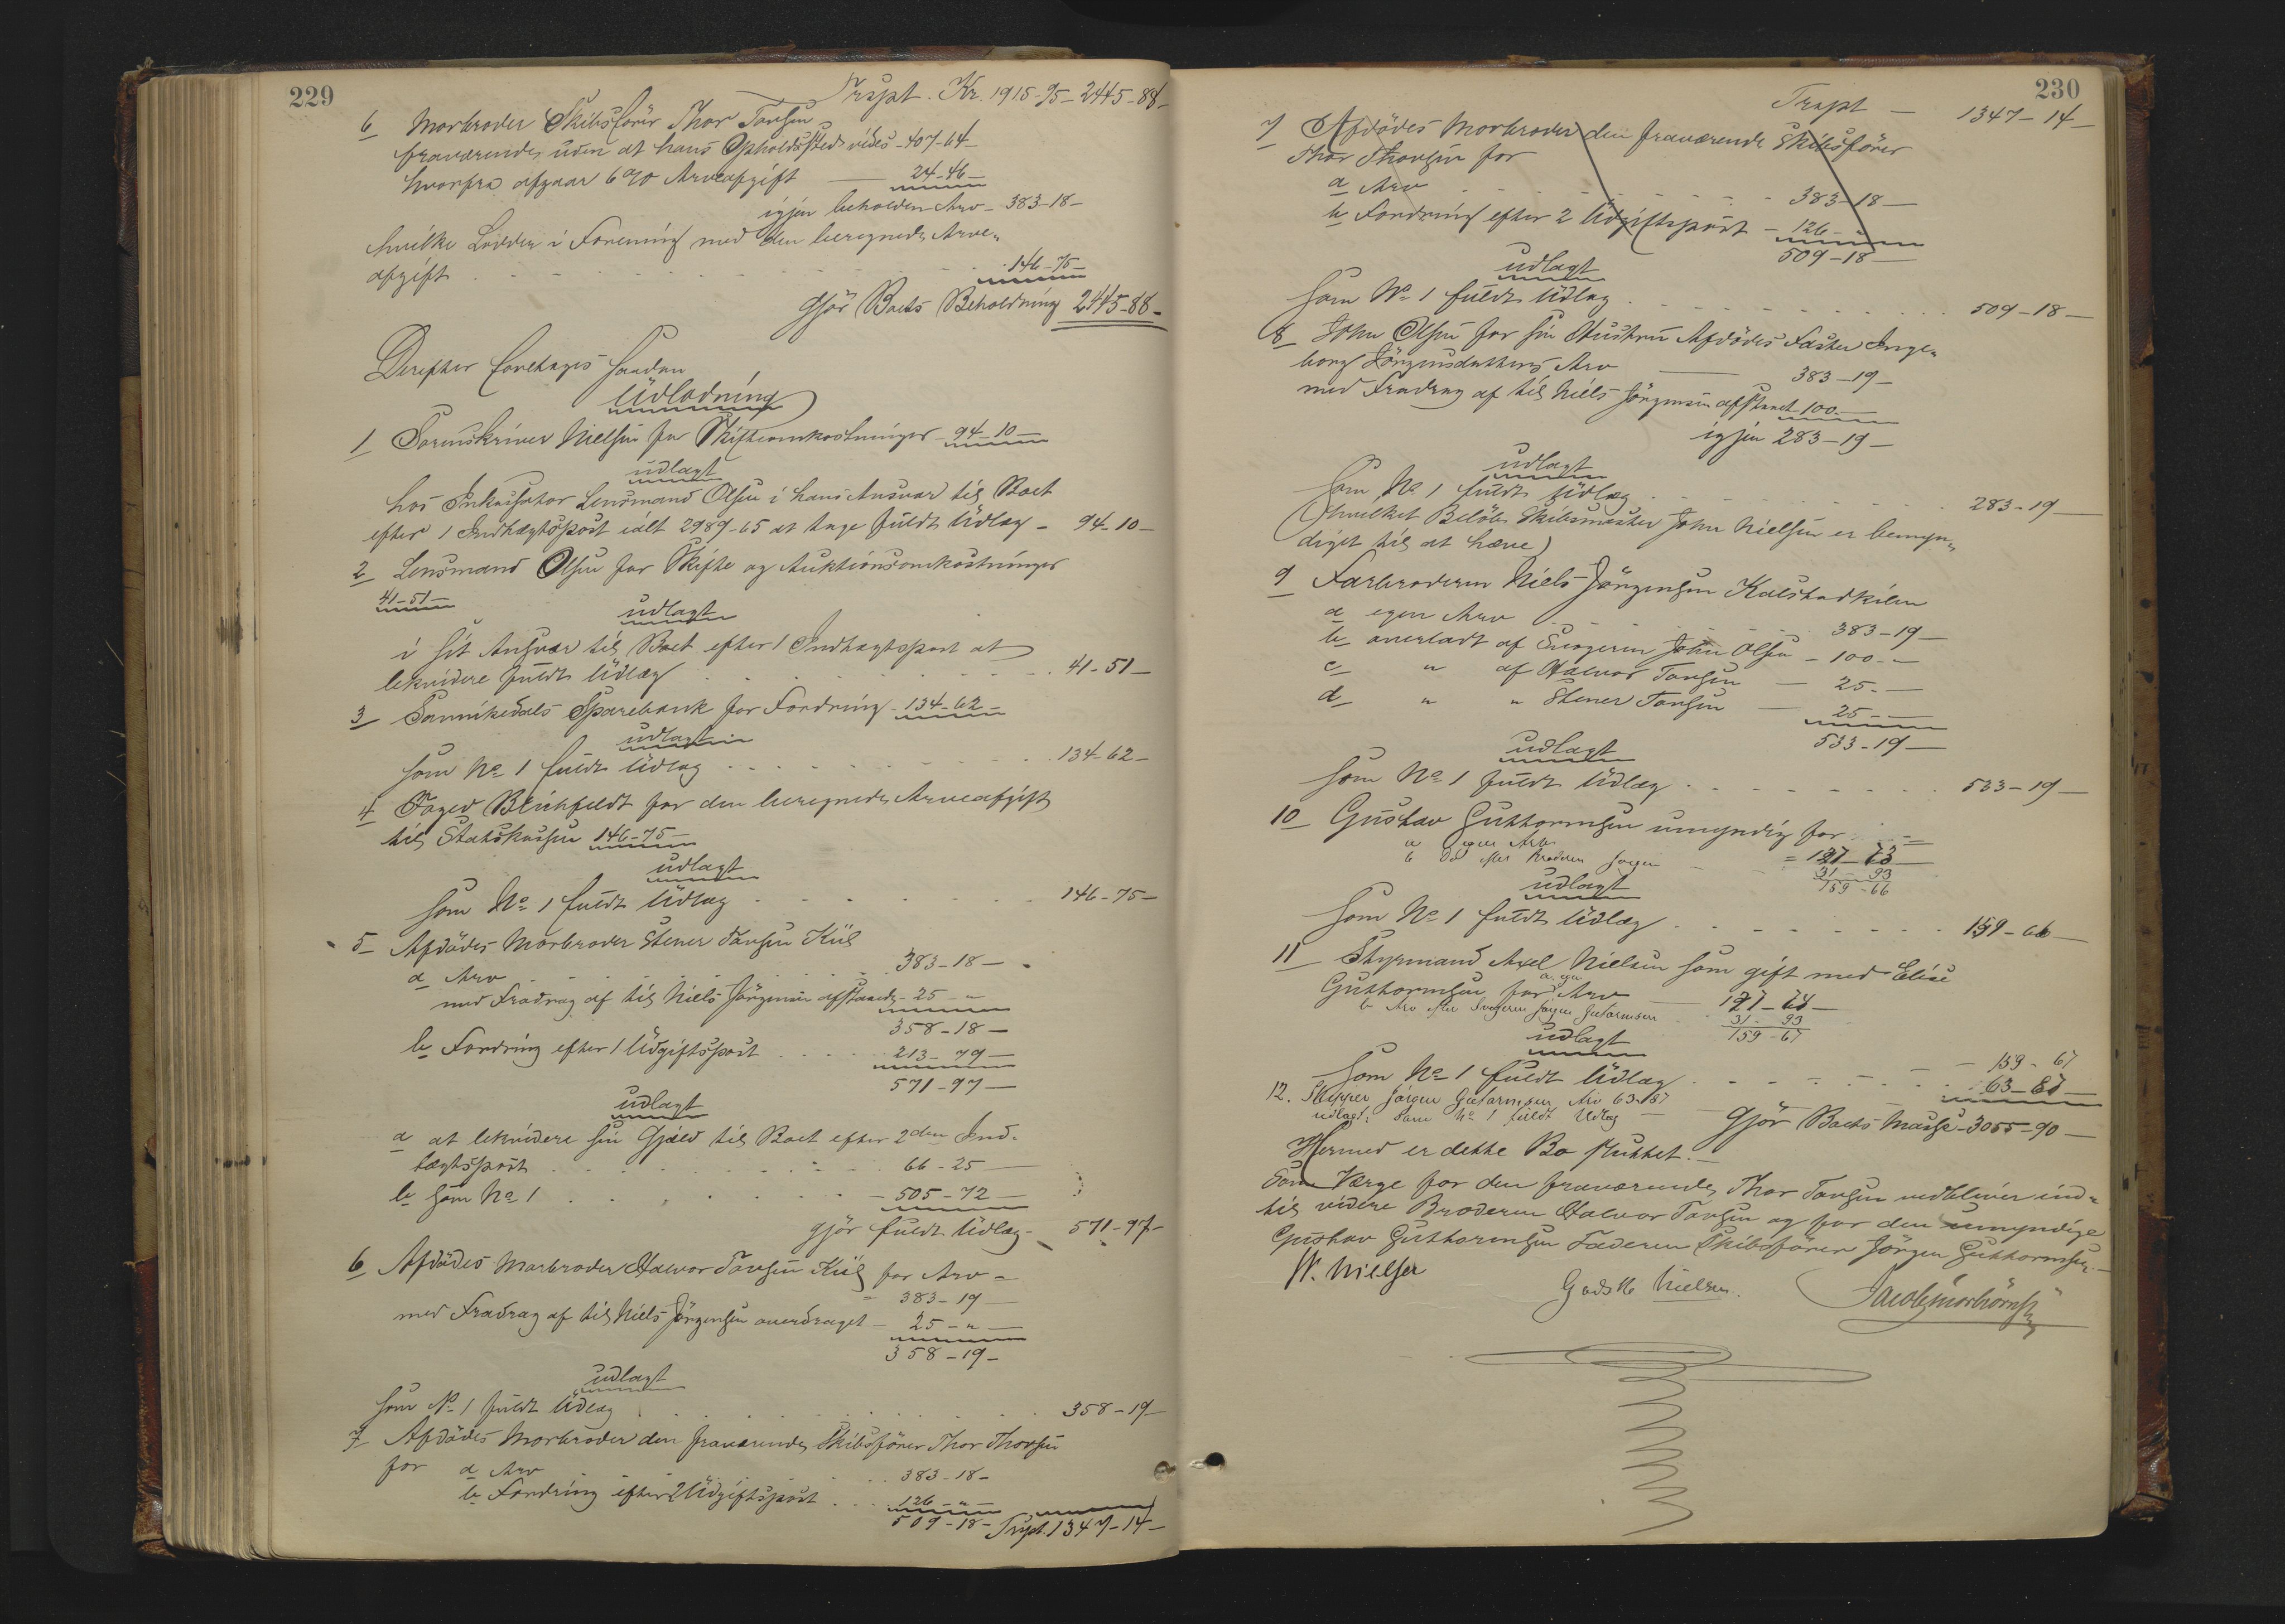 229
Trspt. Kr. 1915-95- 2445-88-
6 Morbroder Skibsfører Thor Tovsen
fraværende, uden at hans Opholdssted vides - 407-64-
hvorfra afgaar 6% Arveafgift — 24-46-
igjen beholden Arv - 383-18-
hvilke Lodder i Forening med den beregnede Arve-
afgift . . . 146-75-
Gjør Boets Beholdning 2445-88-
Derefter foretages saadan
Udlodning
1 Sorenskriver Nielsen for Skifteomkostninger - 94-10-
udlagt
hos Inkassator Lensmand Olsen i hans Ansvar til Boet
efter 1 Indtægtspost ialt 2989-65 at tage fuldt Udlæg - 94-10-
2 Lensmand Olsen for Skifte og Auktionsomkostninger
41-51-
udlagt
i sit Ansvar til Boet efter 1 Indtægtspost at
lekvidere fuldt Udlæg . . . 41-51-
3 Sannikedals Sparebank for Fordring - 134-62-
udlagt
som No 1 fuldt Udlæg . . . 134-62-
4 Foged Blichfeldt for den beregnede Arveafgift
til Statskassen 146-75-
udlagt
som No 1 fuldt Udlæg . . . 146-75-
5 Afdødes Morbroder Stener Tovsen Kiil
a Arv . . . 383-18-
med Fradrag af til Niels Jörgensen afstaaede - 25-"
358-18-
b Fordring efter 1 Udgiftspost . . . 213-79-
571-97-
udlagt
a at lekvidere sin Gjæld til Boet efter 2den Ind-
tægtspost . . . 66-25-
b som No 1 . . . - 505-72-
gjør fuldt Udlæg - 571-97-
6 Afdødes Morbroder Halvor Tovsen Kiil for Arv -
- 383-19-
med Fradrag af til Niels Jörgensen overdraget - 25-"-
358-19-
udlagt
som No 1 fuldt Udlæg . . . 358-19-
7 Afdødes Morbroder den fraværende Skibsfører Thor Thovsen
for a Arv . . . 383-18-
b Fordring efter 2 Udgiftspost . . . 126-"-
509-18- Trspt. 1347-14-
230
Trspt — 1347-14-
7 Afdødes Morbroder den fraværende Skibsfører
Thor Thovsen for
a Arv . . . 383-18-
b Fordring efter 2 Udgiftspost - 126-"-
509-18-
udlagt
som No 1 fuldt Udlæg . . . 509-18-
8 John Olsen for sin Hustru Afdødes Faster Inge-
borg Jörgensdatters Arv — 383-19-
med Fradrag af til Niels Jörgensen afstaaet 100-
igjen 283-19-
udlagt
som No 1 fuldt Udlæg . . . 283-19-
(hvilket Beløb Skibsmester John Nielsen er bemyn-
diget til at hæve)
9 Farbroderen Niels Jörgensen Kalstadkilen
a egen Arv . . . 383-19-
b overladt af Svogeren John Olsen - 100-"-
c " af Halvor Tovsen — 25-
d " " Stener Tovsen — 25-
533-19-
udlagt
som No 1 fuldt Udlæg . . . 533-19-
10 Gustav Guttormsen umyndig for
a egen Arv = 127-73-
b Do efter Broderen Jørgen 31-93
159-66
udlagt
som No 1 fuldt Udlæg . . . 159-66-
11 Styrmand Axel Nielsen som gift med Elise
Guttormsen for a. egen Arv — 127-74-
b Arv efter Svogeren Jørgen Gutormsen 31-93
159-67
udlagt
som No 1 fuldt Udlæg . . . - 159-67
12. Skipper Jørgen Gutormsen Arv 63-87 63-87-
udlagt: som No 1 fuldt Udlæg
Gjør Boets Masse - 3055-90-
Hermed er dette Bo sluttet.-
Som Værge for den fraværende Thor Tovsen vedbliver ind-
til videre Broderen Halvor Tovsen og for den umyndige
Gustav Guttormsen Faderen Skibsfører Jörgen Guttormsen.-
N. Nielsen
Godsk Nielsen.